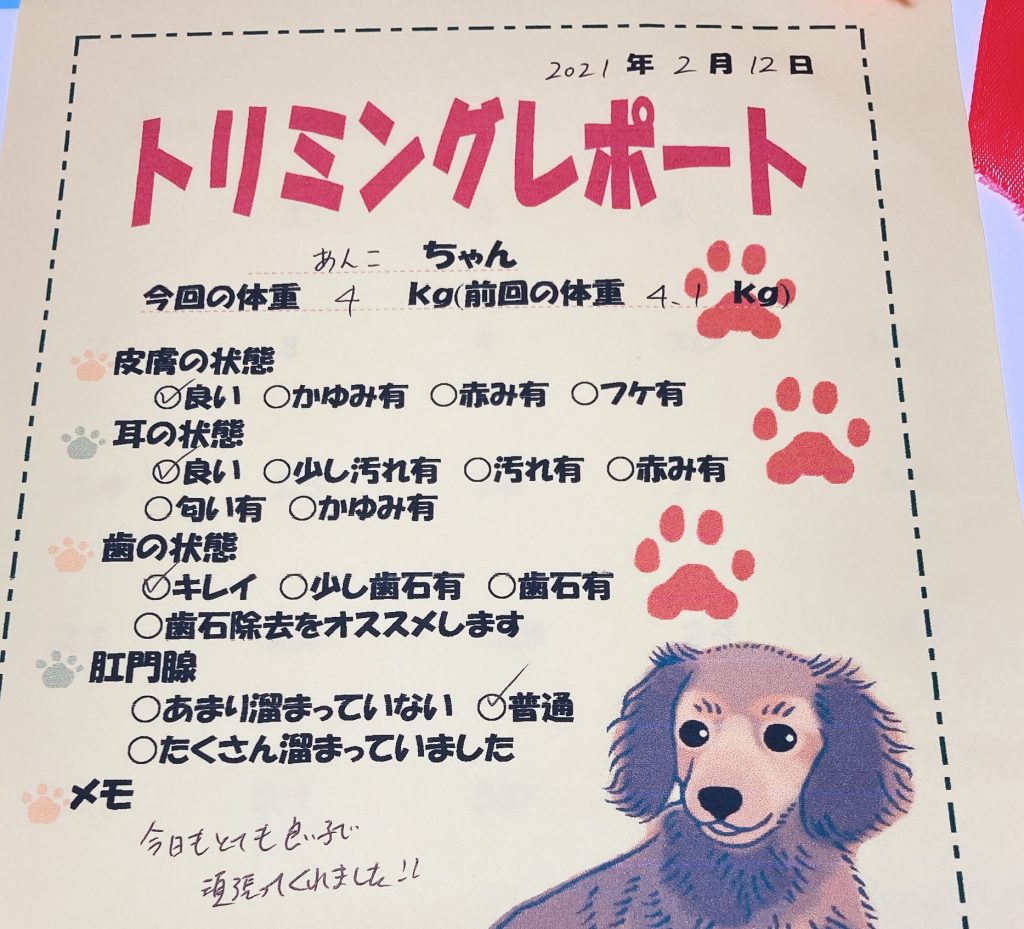 2021年2月12日
トリミングレポート
あんこ ちゃん
今回の体重 4 kg(前回の体重 4.1 Kg)
皮膚の状態
良い ○かゆみ有 ○赤み有 ○フケ有
耳の状態
良い ○少し汚れ有 ○汚れ有 ○赤み有
○匂い有 ○かゆみ有
歯の状態
キレイ ○少し歯石有 ○歯石有
○歯石除去をオススメします
肛門腺
○あまり溜まっていない 普通
○たくさん溜まっていました
メモ
今日もとても良い子で
頑張ってくれました!!